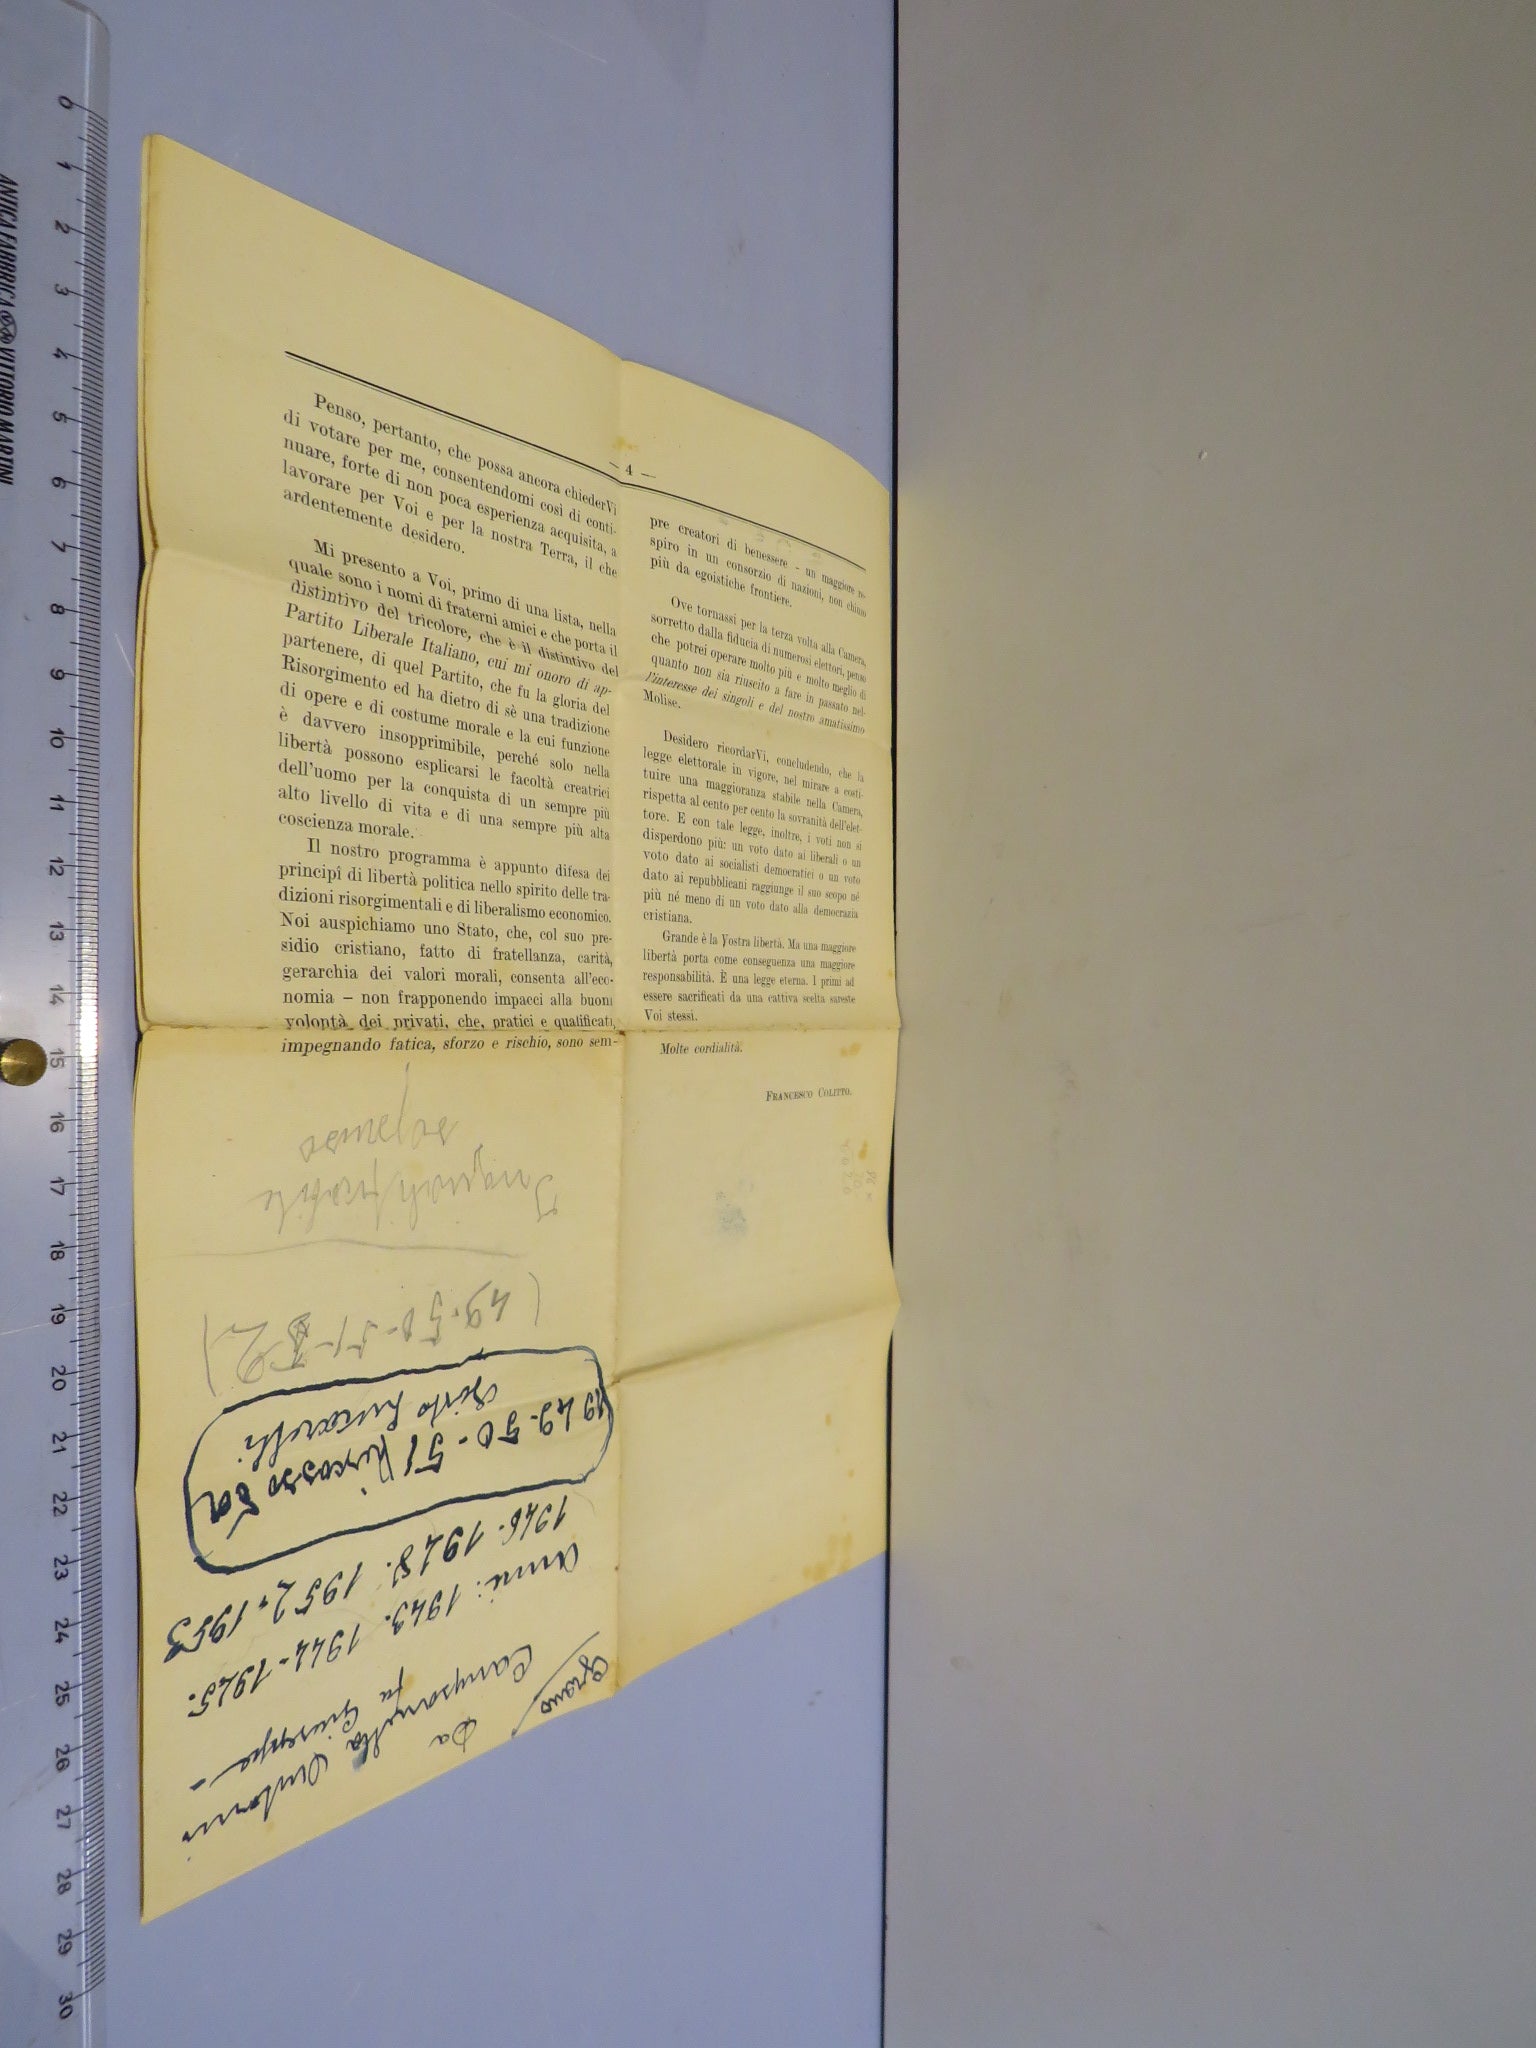 — 4 —
Penso, pertanto, che possa ancora chiederVi
di votare per me, consentendomi così di conti-
nuare, forte di non poca esperienza acquisita, a
lavorare per Voi e per la nostra Terra, il che
ardentemente desidero.
Mi presento a Voi, primo di una lista, nella
quale sono i nomi di fraterni amici e che porta il
distintivo del tricolore, che è il distintivo del
Partito Liberale Italiano, cui mi onoro di ap-
partenere, di quel Partito, che fu la gloria del
Risorgimento ed ha dietro di sè una tradizione
di opere e di costume morale e la cui funzione
è davvero insopprimibile, perché solo nella
libertà possono esplicarsi le facoltà creatrici
dell'uomo per la conquista di un sempre più
alto livello di vita e di una sempre più alta
coscienza morale.
Il nostro programma è appunto difesa dei
principî di libertà politica nello spirito delle tra-
dizioni risorgimentali e di liberalismo economico.
Noi auspichiamo uno Stato, che, col suo pre-
sidio cristiano, fatto di fratellanza, carità,
gerarchia dei valori morali, consenta all'eco-
nomia – non frapponendo impacci alla buona
volontà dei privati, che, pratici e qualificati,
impegnando fatica, sforzo e rischio, sono sem-
pre creatori di benessere - un maggiore re-
spiro in un consorzio di nazioni, non chiuso
più da egoistiche frontiere.
Ove tornassi per la terza volta alla Camera,
sorretto dalla fiducia di numerosi elettori, penso
che potrei operare molto più e molto meglio di
quanto non sia riuscito a fare in passato nel-
l'interesse dei singoli e del nostro amatissimo
Molise.
Desidero ricordarVi, concludendo, che la
legge elettorale in vigore, nel mirare a costi-
tuire una maggioranza stabile nella Camera,
rispetta al cento per cento la sovranità dell'elet-
tore. E con tale legge, inoltre, i voti non si
disperdono più: un voto dato ai liberali o un
voto dato ai socialisti democratici o un voto
dato ai repubblicani raggiunge il suo scopo né
più né meno di un voto dato alla democrazia
cristiana.
Grande è la Vostra libertà. Ma una maggiore
libertà porta come conseguenza una maggiore
responsabilità. È una legge eterna. I primi ad
essere sacrificati da una cattiva scelta sareste
Voi stessi.
Molte cordialità.
FRANCESCO COLITTO.
Grano
Da
Campanella Antonio
fu Giuseppe –
Anni: 1943. 1944 - 1945.
1946. 1948. 1952. 1953
1949. 50 - 51 Riscosso da
Sisto Lucarelli
(49. 50 - 51 - 52)
Inqualificabile
ANTICA FABBRICA VITTORIO MARTINI
0 1 2 3 4 5 6 7 8 9 10 11 12 13 14 15 16 17 18 19 20 21 22 23 24 25 26 27 28 29 30